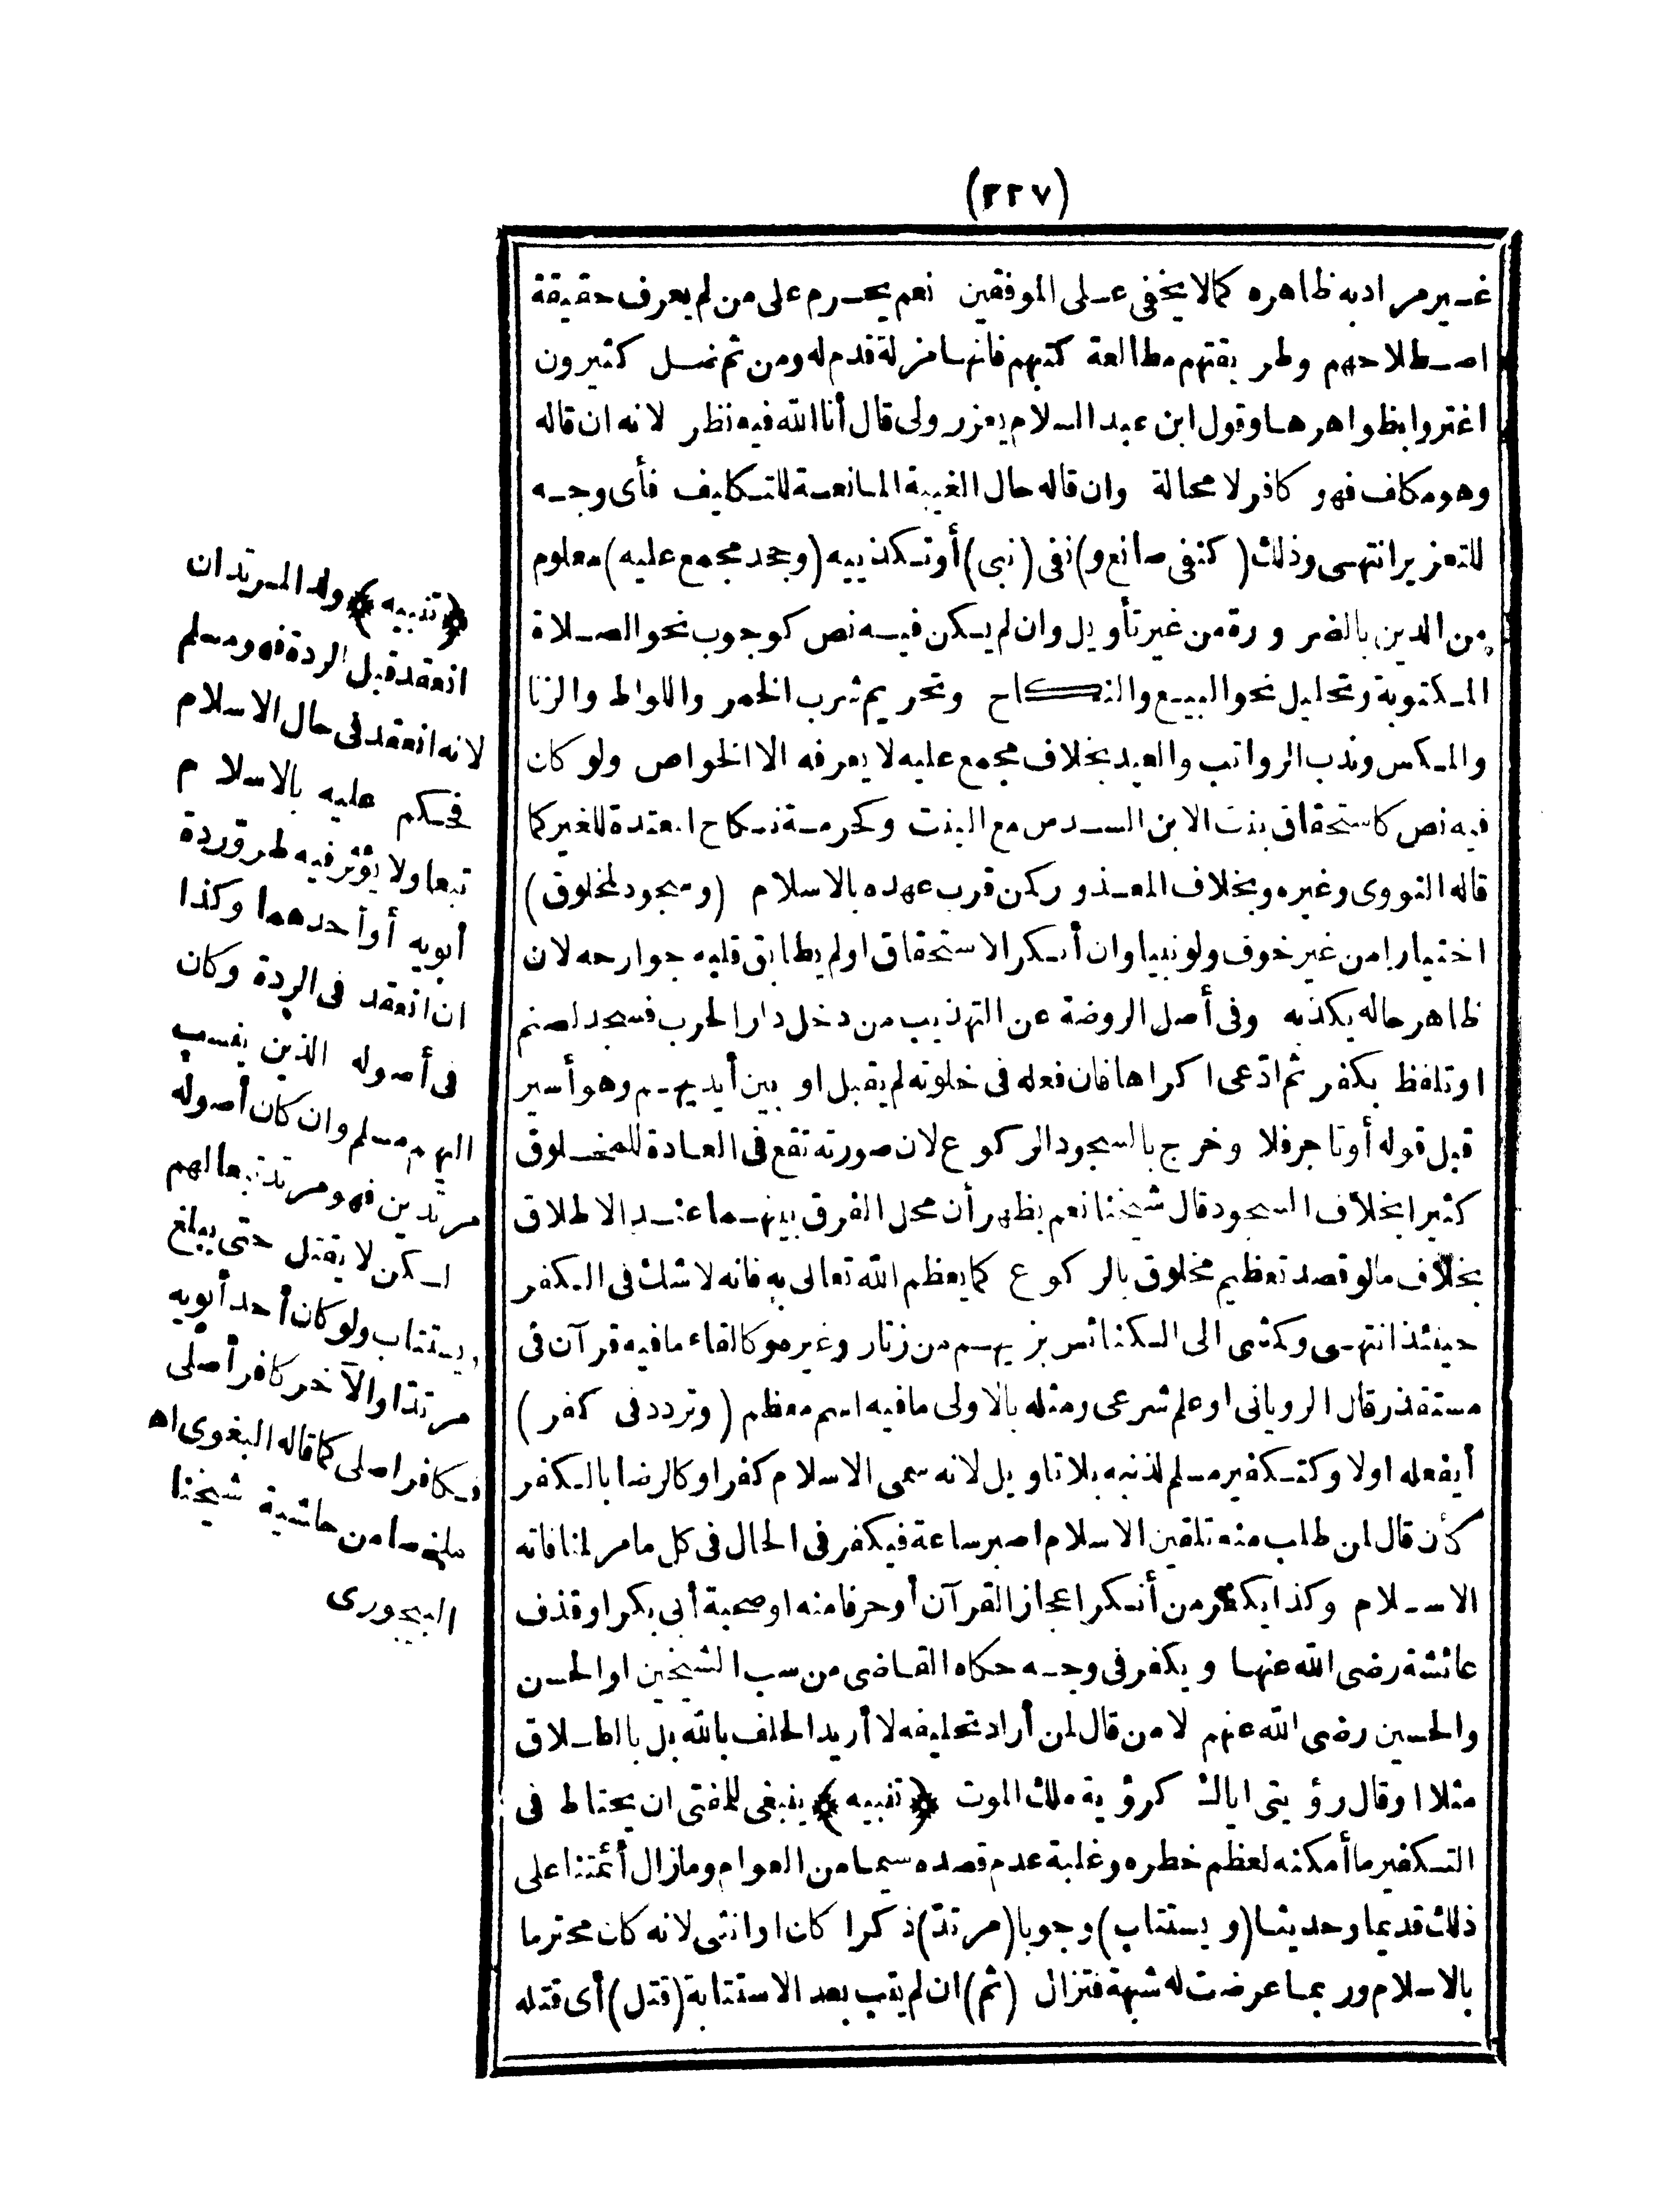 (٢٢٧)
غير مراد به ظاهره كما لا يخفى على الموفقين نعم يحرم على من لم يعرف حقيقة
اصطلاحهم وطريقتهم مطالعة كتبهم فانها مزلة قدم له ومن ثم ضل كثيرون
اغتروا بظواهرها وقول ابن عبد السلام يعزر ولى قال أنا الله فيه نظر لانه ان قاله
وهو مكلف فهو كافر لا محالة وان قاله حال الغيبة المانعة للتكليف فأى وجه
للتعزير انتهى وذلك (كنفى صانع و) نفى (نبى) أو تكذيبه (وجحد مجمع عليه) معلوم
من الدين بالضرورة من غير تأويل وان لم يكن فيه نص كوجوب نحو الصلاة
المكتوبة وتحليل نحو البيع والنكاح وتحريم شرب الخمر واللواط والزنا
والمكس وندب الرواتب والعيد بخلاف مجمع عليه لا يعرفه الا الخواص ولو كان
فيه نص كاستحقاق بنت الابن السدس مع البنت وكحرمة نكاح المعتدة للغير كما
قاله النووى وغيره وبخلاف المعذور كمن قرب عهده بالاسلام (وسجود لمخلوق)
اختيارا من غير خوف ولو نبيا وان أنكر الاستحقاق او لم يطابق قلبه جوارحه لان
ظاهر حاله يكذبه وفى أصل الروضة عن التهذيب من دخل دار الحرب فسجد لصنم
او تلفظ بكفر ثم ادّعى اكراها فان فعله فى خلوته لم يقبل او بين أيديهم وهو أسير
قبل قوله أو تاجر فلا وخرج بالسجود الركوع لان صورته تقع فى العادة للمخلوق
كثيرا بخلاف السجود قال شيخنا نعم يظهر أن محل الفرق بينهما عند الاطلاق
بخلاف ما لو قصد تعظيم مخلوق بالركوع كما يعظم الله تعالى به فانه لا شك فى الكفر
حينئذ انتهى وكمشى الى الكنائس بزيهم من زنار وغيره وكالقاء ما فيه قرآن فى
مستقذر قال الرويانى او علم شرعى ومثله بالاولى ما فيه اسم معظم (وتردد فى كفر)
أيفعله اولا وكتكفير مسلم لذنبه بلا تاويل لانه سمى الاسلام كفرا وكالرضا بالكفر
كأن قال لمن طلب منه تلقين الاسلام اصبر ساعة فيكفر فى الحال فى كل ما مر لمنافاته
الاسلام وكذا يكفر من أنكر اعجاز القرآن أو حرفا منه او صحبة أبى بكر او قذف
عائشة رضى الله عنها ويكفر فى وجه حكاه القاضى من سب الشيخين او الحسن
والحسين رضى الله عنهم لا من قال لمن أراد تحليفه لا أريد الحلف بالله بل بالطلاق
مثلا او قال رؤيتى اياك كرؤية ملك الموت ﴿تنبيه﴾ ينبغى للمفتى ان يحتاط فى
التكفير ما أمكنه لعظم خطره وغلبة عدم قصده سيما من العوام وما زال أئمتنا على
ذلك قديما وحديثا (ويستتاب) وجوبا (مرتدّ) ذكرا كان او انثى لانه كان محترما
بالاسلام وربما عرضت له شبهة فتزال (ثم) ان لم يتب بعد الاستتابة (قتل) أى قتله
﴿تنبيه﴾ ولد المرتد ان
انعقد قبل الردة فهو مسلم
لانه انعقد فى حال الاسلام
فحكم عليه بالاسلام
تبعا ولا يؤثر فيه طروّ ردة
أبويه أو أحدهما وكذا
ان انعقد فى الردة وكان
فى أصوله الذين ينسب
اليهم مسلم وان كان أصوله
مرتدين فهو مرتد تبعا لهم
لكن لا يقتل حتى يبلغ
ويستتاب ولو كان أحد أبويه
مرتدّا والآخر كافر أصلى
فكافر اصلى كما قاله البغوى اه
ملخصا من حاشية شيخنا
البيجورى